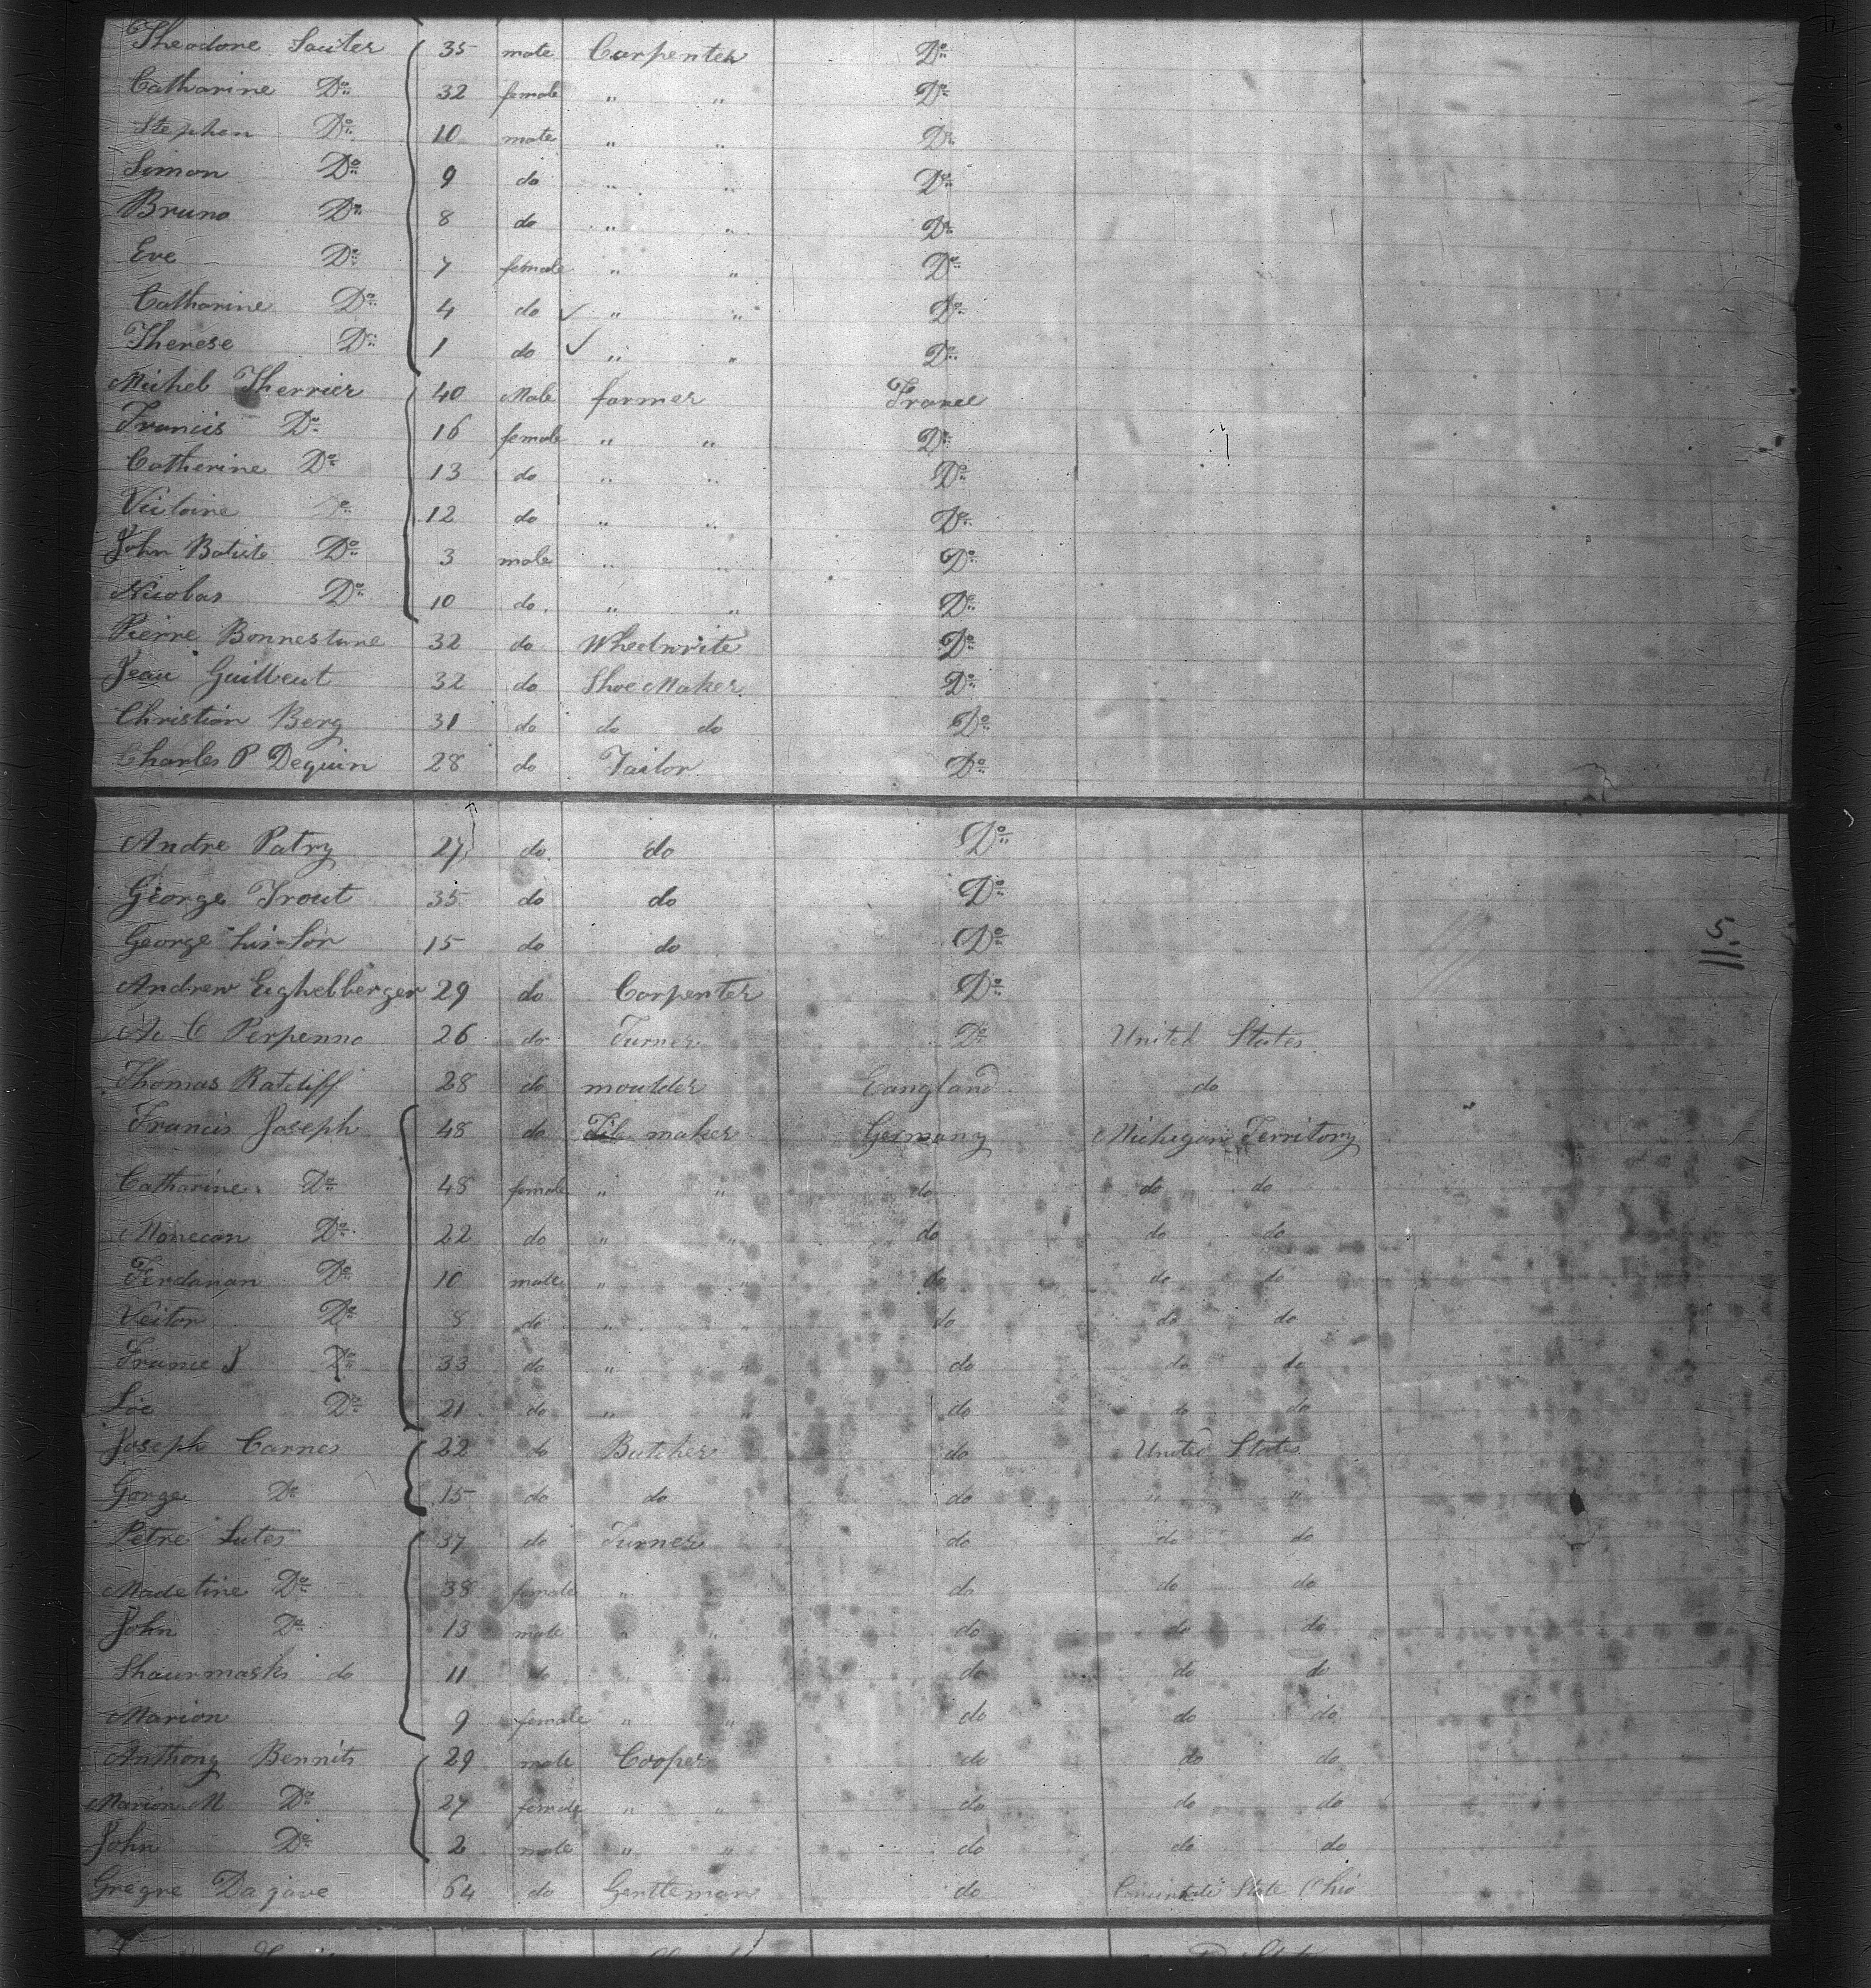 Theodore Sauter 35 male Carpenter Do
Catharine Do 32 female " " Do
Stephen Do 10 male " " Do
Simon Do 9 do " " Do
Bruno Do 8 do " " Do
Eve Do 7 female " " Do
Catharine Do 4 do " " Do
Therese Do 1 do " " Do
Michel Therrier 40 Male farmer France
Francis Do 16 female " " Do
Catherine Do 13 do " " Do
Victoire Do 12 do " " Do
John Batist Do 3 male " " Do
Nicolas Do 10 do " " Do
Pierre Bonnestone 32 do Wheelwrite Do
Jean Guilbeut 32 do Shoe Maker Do
Christian Berg 31 do do do Do
Charles P Dequin 28 do Tailor Do
Andre Patry 27 do do Do
George Trout 35 do do Do
George his Son 15 do do Do
5.
Andrew Eighelberger 29 do Carpenter Do
C Perpenna 26 do Turner Do United States
Thomas Ratcliff 28 do moulder Eangland do
Francis Joseph 48 do maker Germany Michigan Territory
Catharine Do 48 female " " do do do
Monecan Do 22 do " " do do do
Ferdanan Do 10 male " " do do do
Veitor Do 8 do " " do do do
France J Do 33 do " " do do do
Do 21 do " " do do do
Joseph Carnes 22 do Butcher do United States
Gorge Do 15 do do do " "
Petre Lutes 37 do Turner do do do
Madeline Do 38 female " " do do do
John Do 13 male " " do do do
do 11 do " " do do do
Marion 9 female " " do do do
Anthony Bennits 29 male Cooper do do do
Marion M Do 27 female " " do do do
John Do 2 male " " do do do
Gregre Dagave 64 do Gentleman do State Ohio